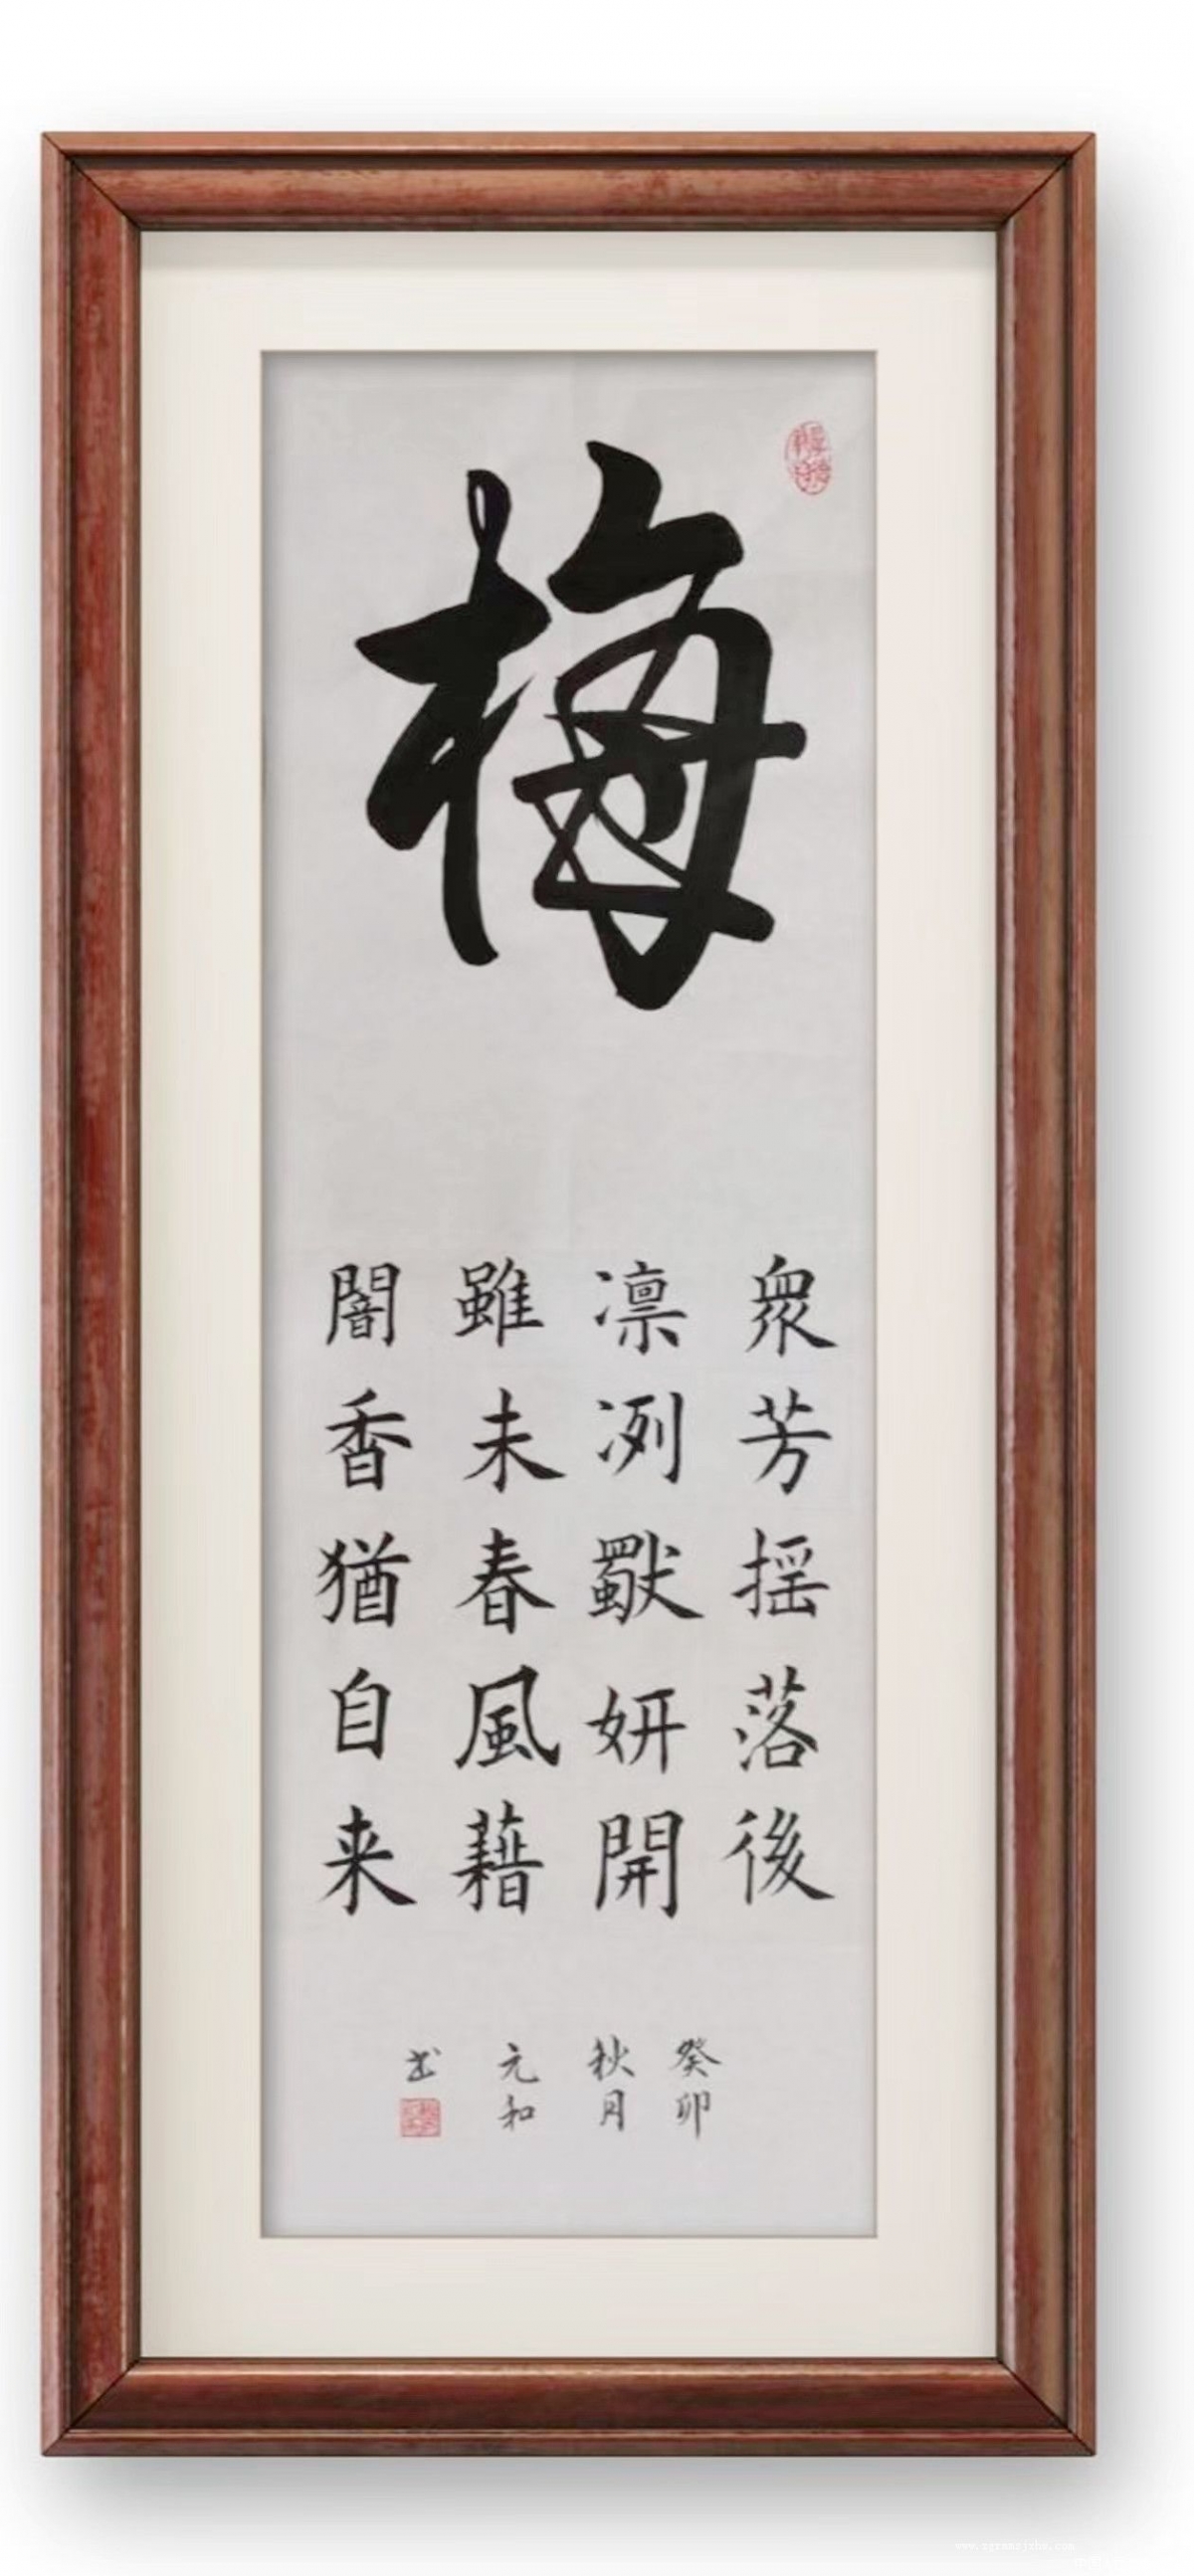 梅
衆芳揺落後
凛冽獸妍開
雖未春風藉
闇香猶自来
癸卯
秋月
元和
书